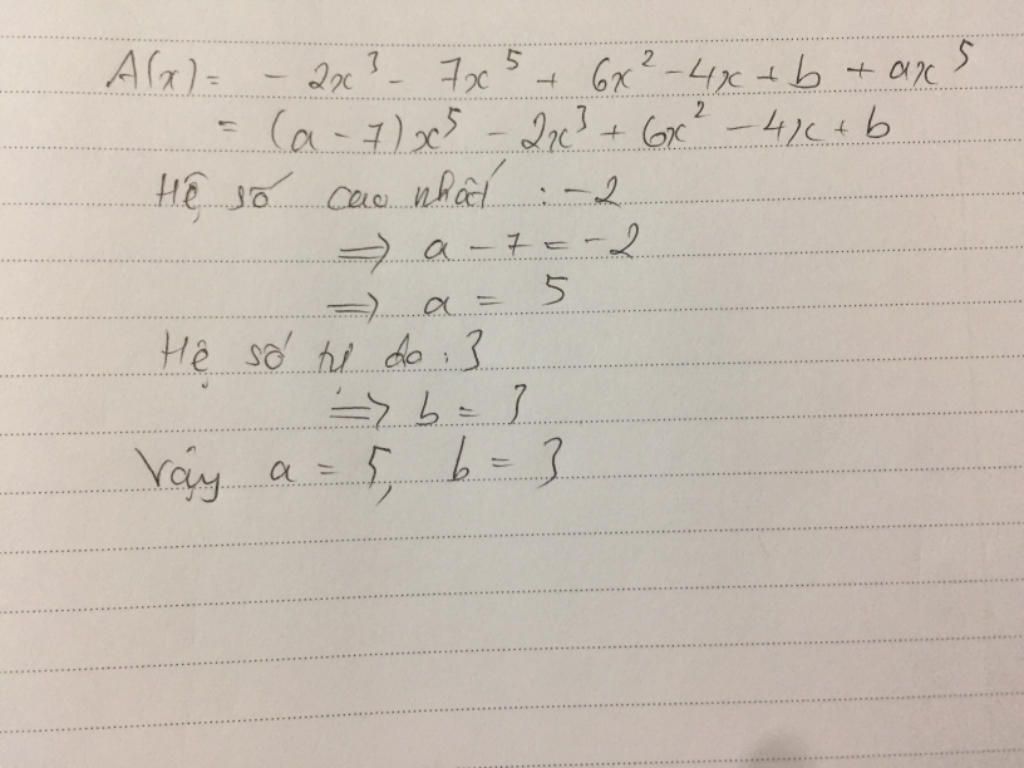 A(x) = - 2x³ - 7x⁵ + 6x² - 4x + b + ax⁵
= (a - 7)x⁵ - 2x³ + 6x² - 4x + b
Hệ số cao nhất : -2
⇒ a - 7 = -2
⇒ a = 5
Hệ số tự do : 3
⇒ b = 3
Vậy a = 5, b = 3